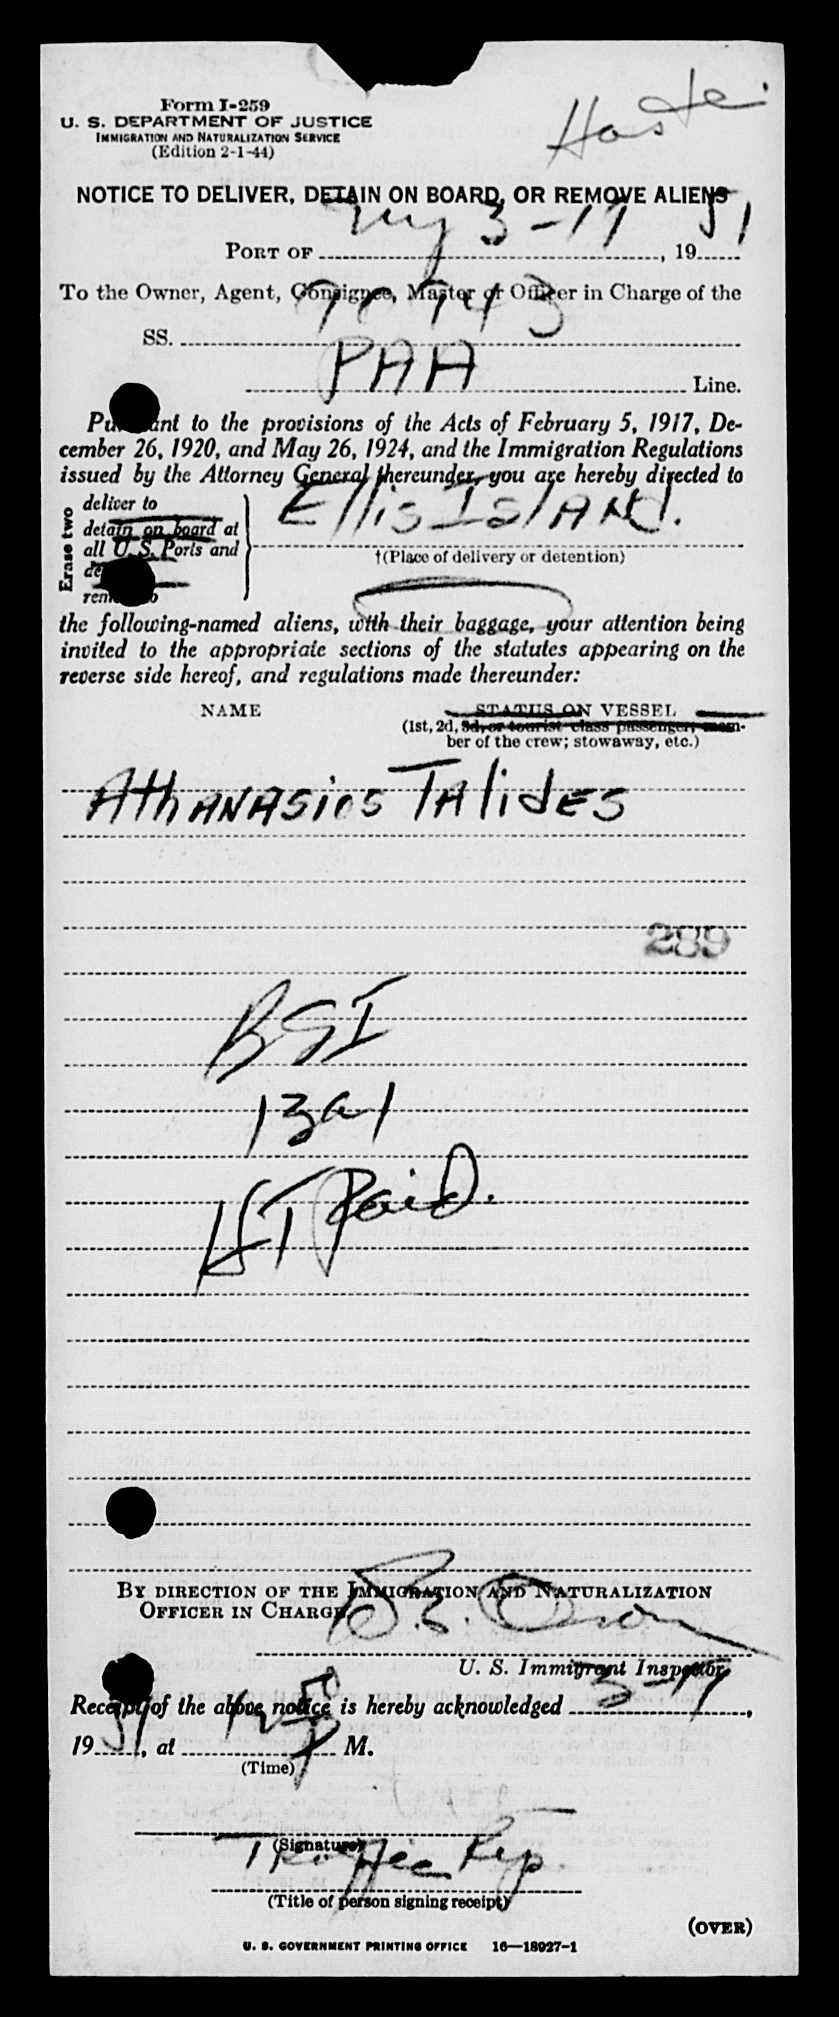 Form I-259
U. S. DEPARTMENT OF JUSTICE
IMMIGRATION AND NATURALIZATION SERVICE
(Edition 2-1-44)
NOTICE TO DELIVER, DETAIN ON BOARD, OR REMOVE ALIENS
PORT OF NY 3-17, 19 51
To the Owner, Agent, Consignee, Master or Officer in Charge of the
SS.
PAA Line.
Pursuant to the provisions of the Acts of February 5, 1917, De-
cember 26, 1920, and May 26, 1924, and the Immigration Regulations
issued by the Attorney General thereunder, you are hereby directed to
Erase two
deliver to
detain on board at
all U. S. Ports and
remove to
Ellis Island.
†(Place of delivery or detention)
the following-named aliens, with their baggage, your attention being
invited to the appropriate sections of the statutes appearing on the
reverse side hereof, and regulations made thereunder:
NAME STATUS ON VESSEL
(1st, 2d, 3d, or tourist class passenger; mem-
ber of the crew; stowaway, etc.)
Athanasios Talides
289
BSI
13a1
HT Paid.
BY DIRECTION OF THE IMMIGRATION AND NATURALIZATION
OFFICER IN CHARGE
U. S. Immigrant Inspector
Receipt of the above notice is hereby acknowledged 3-17,
19 51, at P M.
(Time)
(Signature)
Traffic Rep.
(Title of person signing receipt)
(OVER)
U. S. GOVERNMENT PRINTING OFFICE 16—18927-1